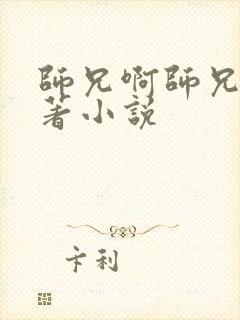 師兄啊師兄
著小説
卡利